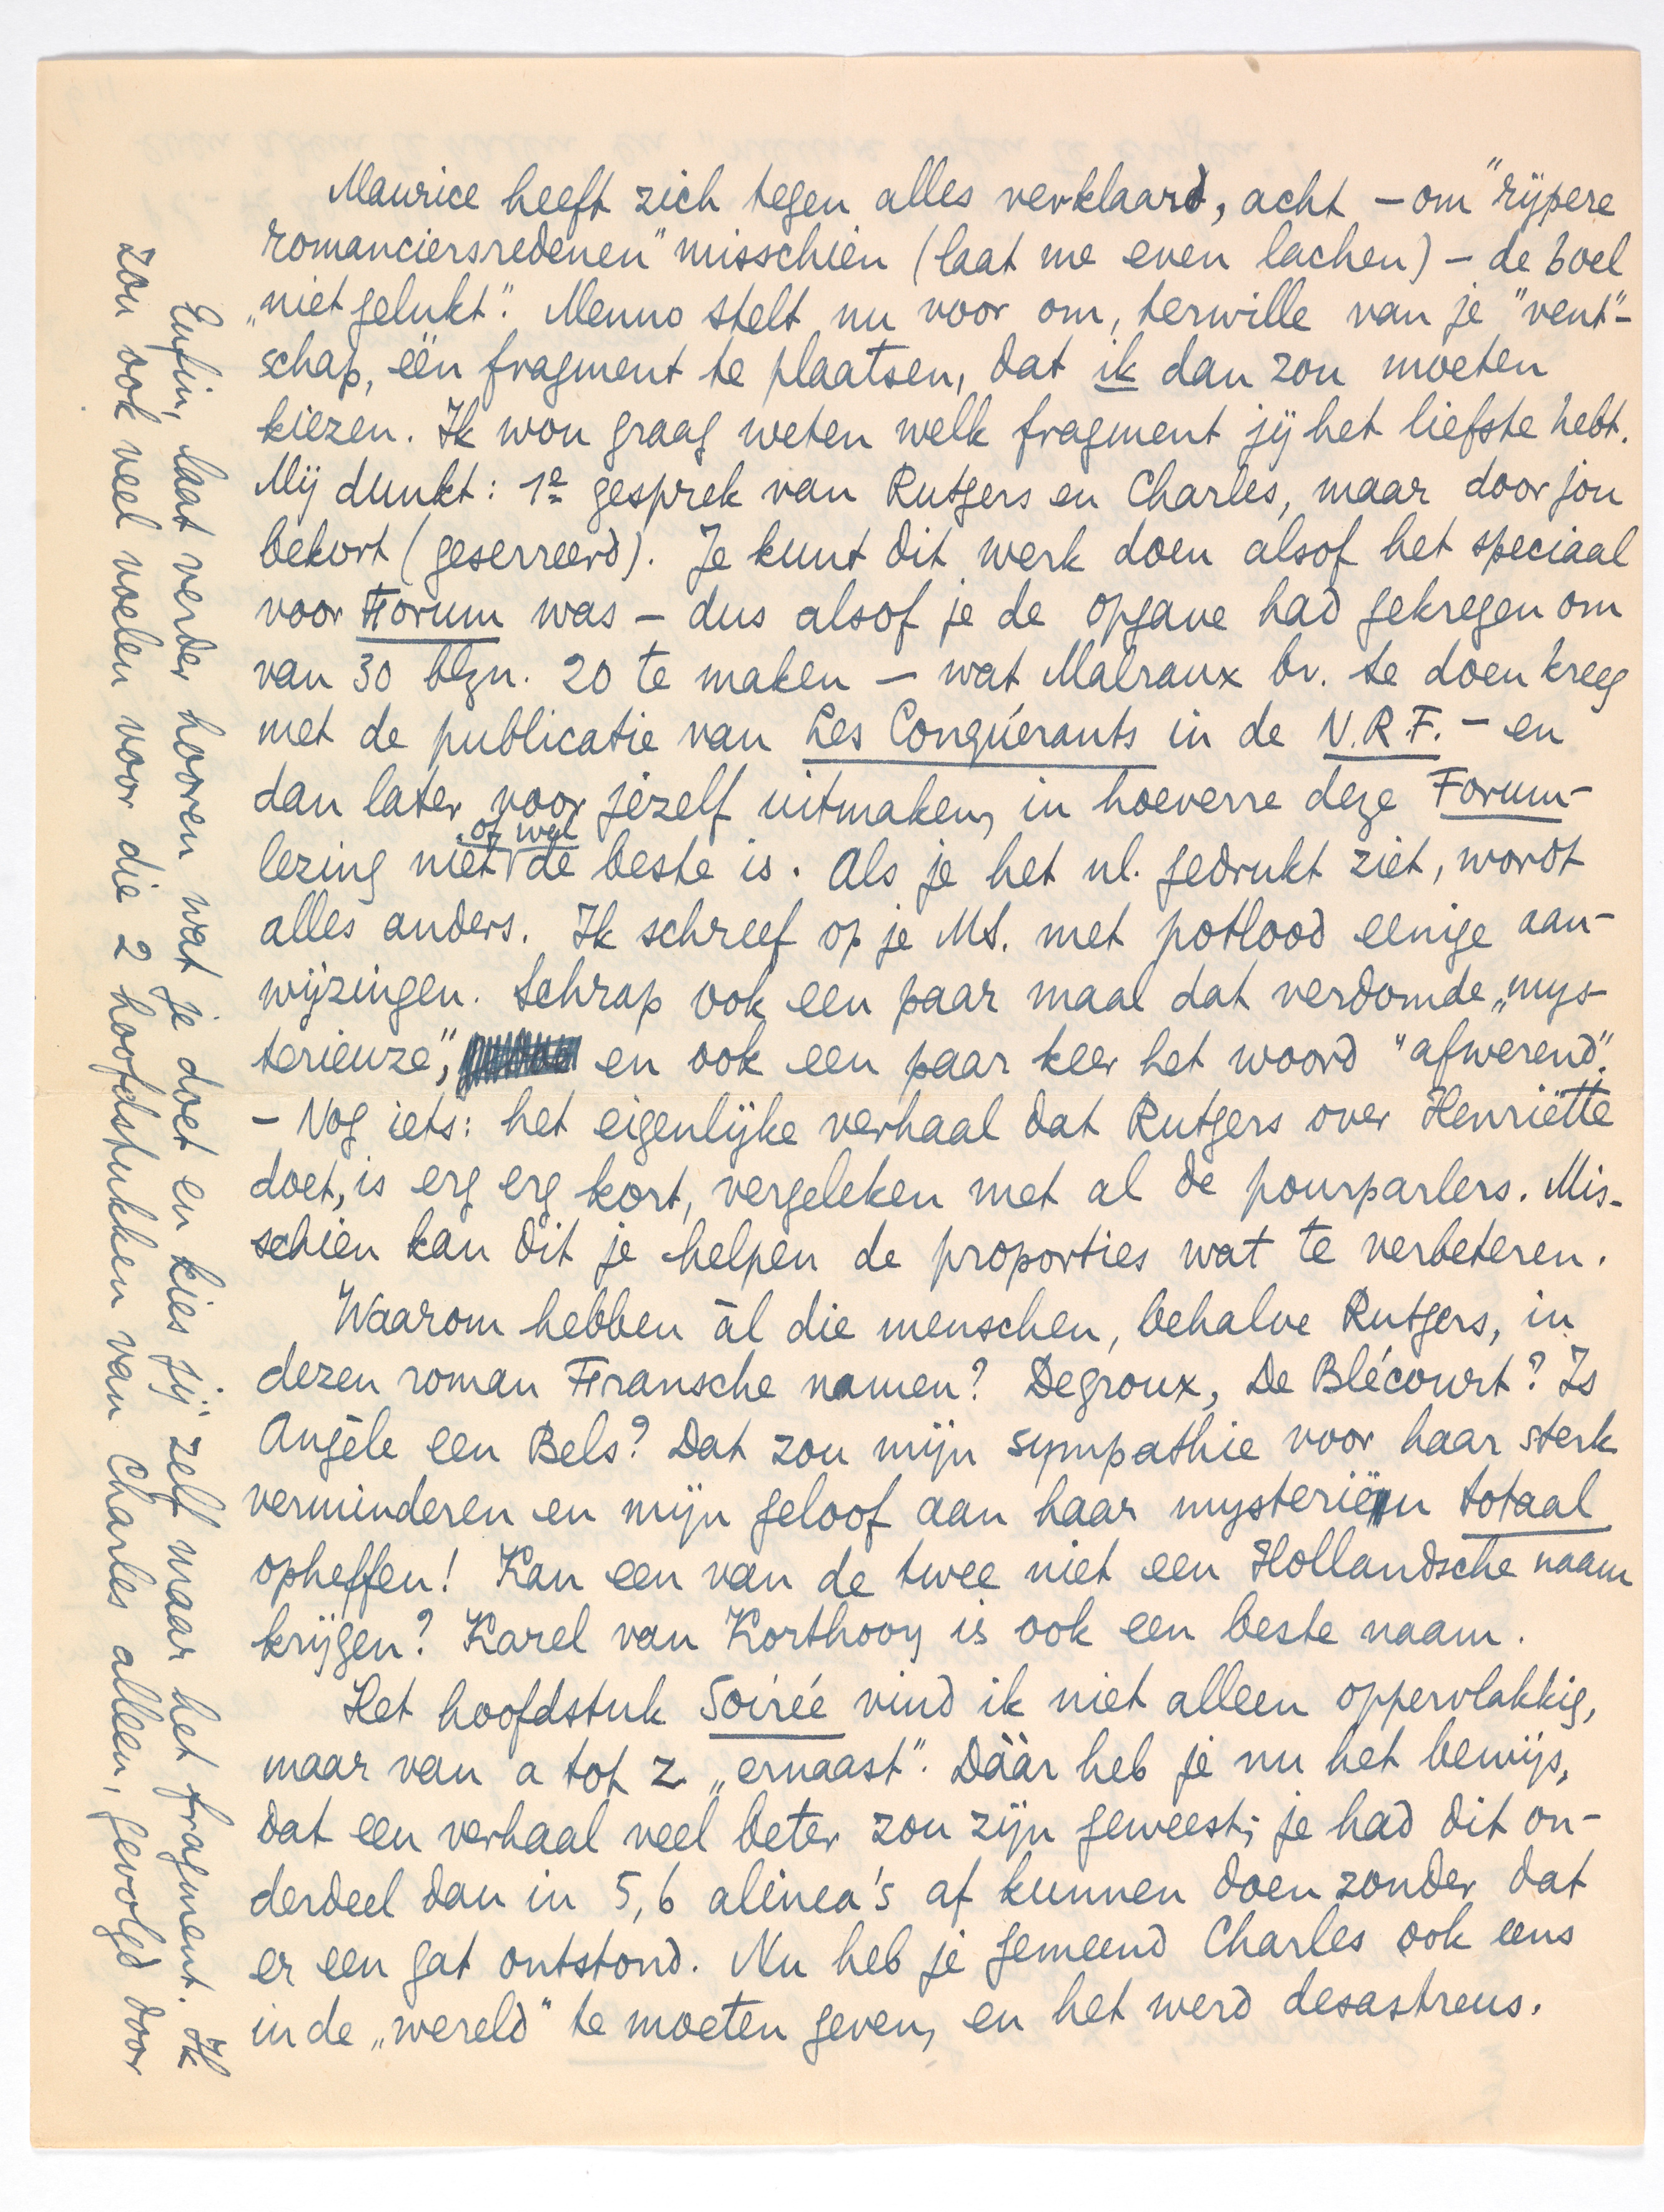 Maurice heeft zich tegen alles verklaard, acht – om "rijpere
romanciersredenen" misschien (laat me even lachen) – de boel
„niet gelukt". Menno stelt nu voor om, terwille van je "vent"-
schap, één fragment te plaatsen, dat ik dan zou moeten
kiezen. Ik wou graag weten welk fragment jij het liefste hebt.
Mij dunkt: 1e gesprek van Rutgers en Charles, maar door jou
bekort (geserreerd). Je kunt dit werk doen alsof het speciaal
voor Forum was – dus alsof je de opgave had gekregen om
van 30 blzn. 20 te maken – wat Malraux bv. te doen kreeg
met de publicatie van Les Conquérants in de N.R.F. – en
dan later voor jezelf uitmaken, in hoeverre deze Forum-
lezing niet of wel de beste is. Als je het nl. gedrukt ziet, wordt
alles anders. Ik schreef op je MS. met potlood eenige aan-
wijzingen. Schrap ook een paar maal dat verdomde „mys-
terieuze", en ook een paar keer het woord "afwerend".
– Nog iets: het eigenlijke verhaal dat Rutgers over Henriëtte
doet, is erg erg kort, vergeleken met al de pourparlers. Mis-
schien kan dit je helpen de proporties wat te verbeteren.
Waarom hebben ál die menschen, behalve Rutgers, in
dezen roman Fransche namen? Degroux, De Blécourt? Is
Angèle een Bels? Dat zou mijn sympathie voor haar sterk
verminderen en mijn geloof aan haar mysteriën totaal
opheffen! Kan een van de twee niet een Hollandsche naam
krijgen? Karel van Korthooy is ook een beste naam.
Het hoofdstuk Soirée vind ik niet alleen oppervlakkig,
maar van a tot z „ernaast". Dáár heb je nu het bewijs,
dat een verhaal veel beter zou zijn geweest; je had dit on-
derdeel dan in 5, 6 alinea's af kunnen doen zonder dat
er een gat ontstond. Nu heb je gemeend Charles ook eens
in de „wereld" te moeten geven, en het werd desastreus.
Enfin, laat verder hooren wat je doet en kies jij zelf maar het fragment. Ik
zou ook veel voelen voor die 2 hoofdstukken van Charles alleen, gevolgd door